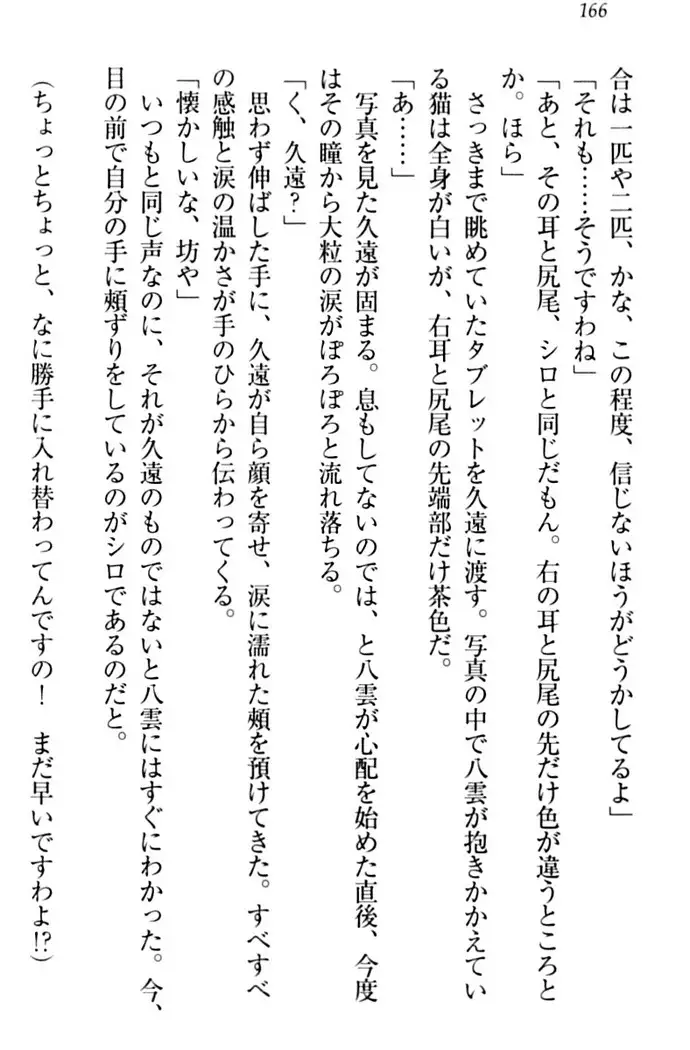 166
合は一匹や二匹、かな、この程度、信じないほうがどうかしてるよ」
「それも……そうですわね」
「あと、その耳と尻尾、シロと同じだもん。右の耳と尻尾の先だけ色が違うところと
か。ほら」
さっきまで眺めていたタブレットを久遠に渡す。写真の中で八雲が抱きかかえてい
る猫は全身が白いが、右耳と尻尾の先端部だけ茶色だ。
「あ……」
写真を見た久遠が固まる。息もしてないのでは、と八雲が心配を始めた直後、今度
はその瞳から大粒の涙がぽろぽろと流れ落ちる。
「く、久遠？」
思わず伸ばした手に、久遠が自ら顔を寄せ、涙に濡れた頰を預けてきた。すべすべ
の感触と涙の温かさが手のひらから伝わってくる。
「懐かしいな、坊や」
いつもと同じ声なのに、それが久遠のものではないと八雲にはすぐにわかった。今、
目の前で自分の手に頰ずりをしているのがシロであるのだと。
（ちょっとちょっと、なに勝手に入れ替わってんですの！　まだ早いですわよ!?）